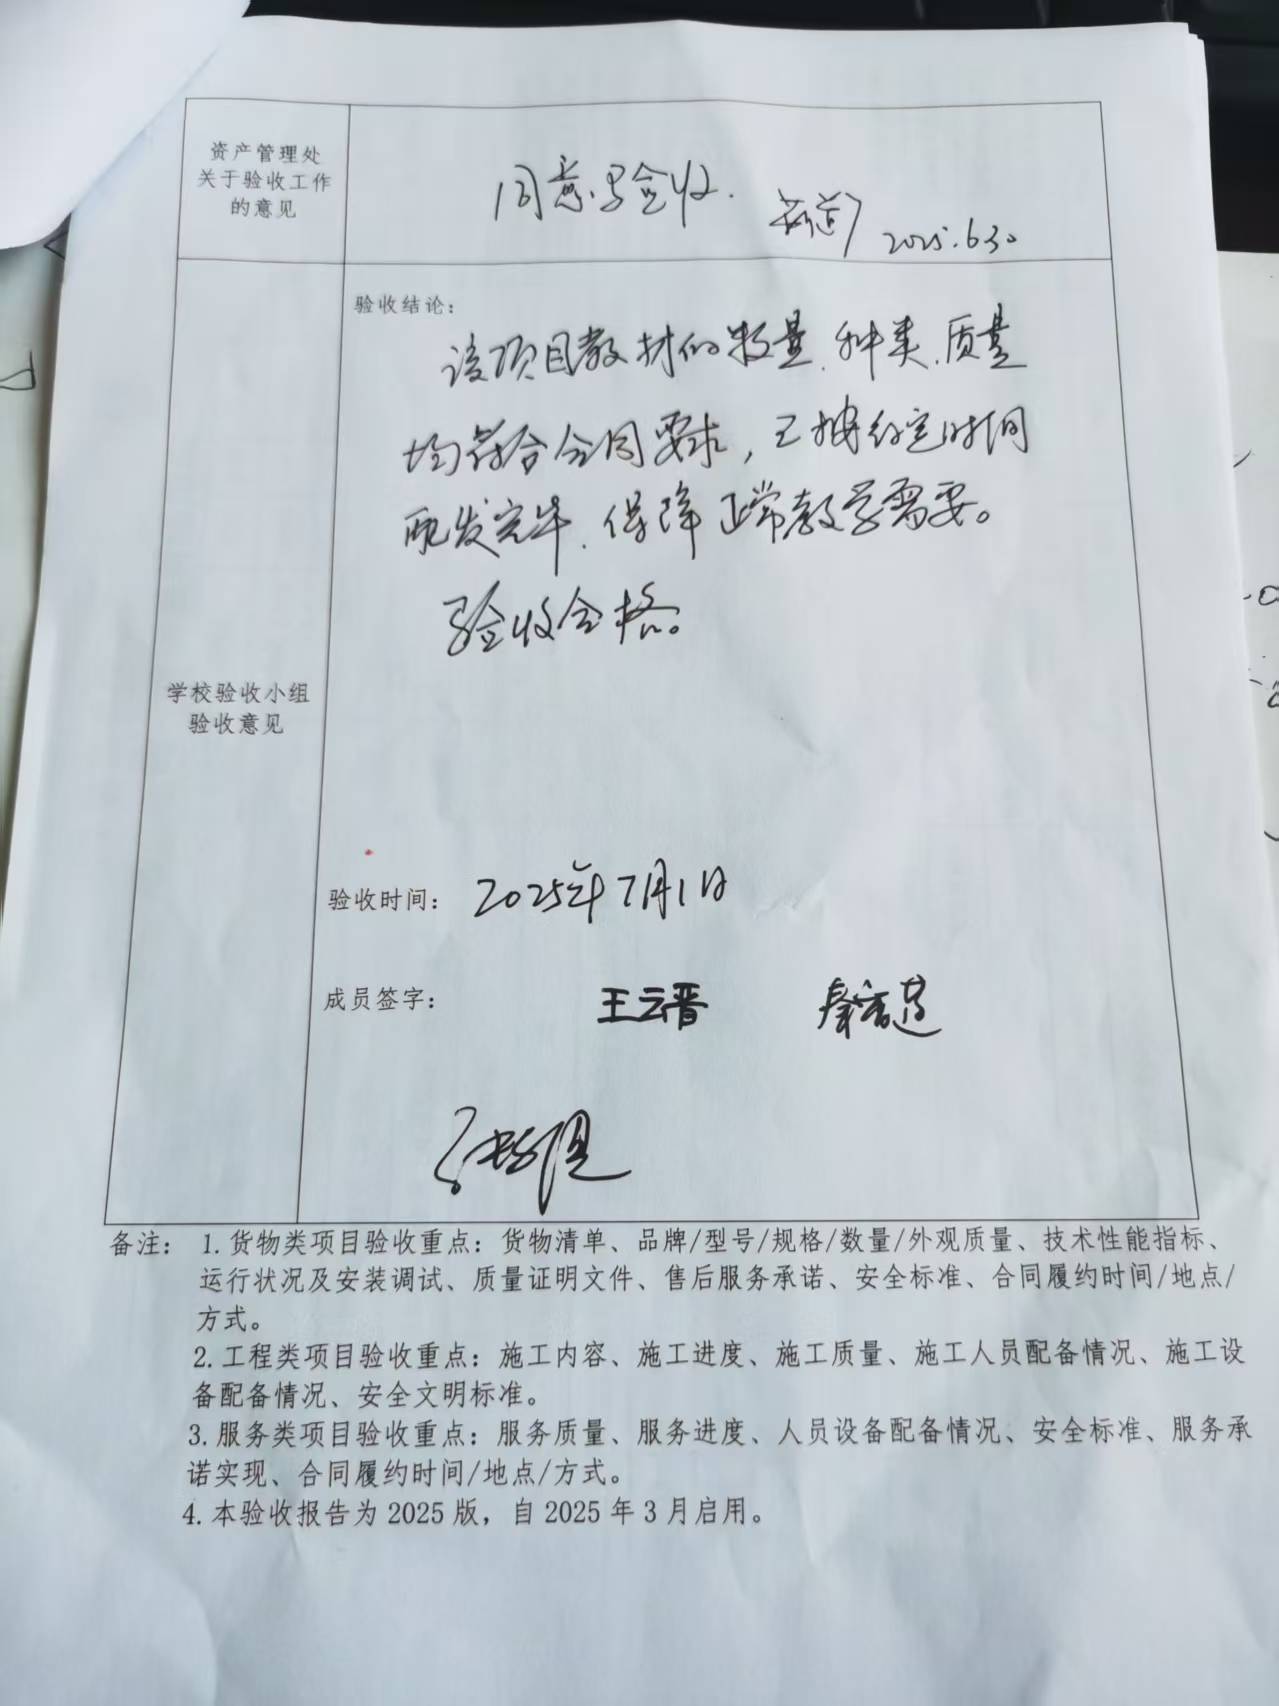 资产管理处
关于验收工作
的意见
同意验收.
2025.6.30
验收结论：
该项目教材的数量、种类、质量
均符合合同要求，已按约定时间
配发完毕、保障正常教学需要。
验收合格。
学校验收小组
验收意见
验收时间： 2025年7月1日
成员签字： 王云晋
备注： 1.货物类项目验收重点：货物清单、品牌/型号/规格/数量/外观质量、技术性能指标、
运行状况及安装调试、质量证明文件、售后服务承诺、安全标准、合同履约时间/地点/
方式。
2.工程类项目验收重点：施工内容、施工进度、施工质量、施工人员配备情况、施工设
备配备情况、安全文明标准。
3.服务类项目验收重点：服务质量、服务进度、人员设备配备情况、安全标准、服务承
诺实现、合同履约时间/地点/方式。
4.本验收报告为 2025 版，自 2025 年 3 月启用。